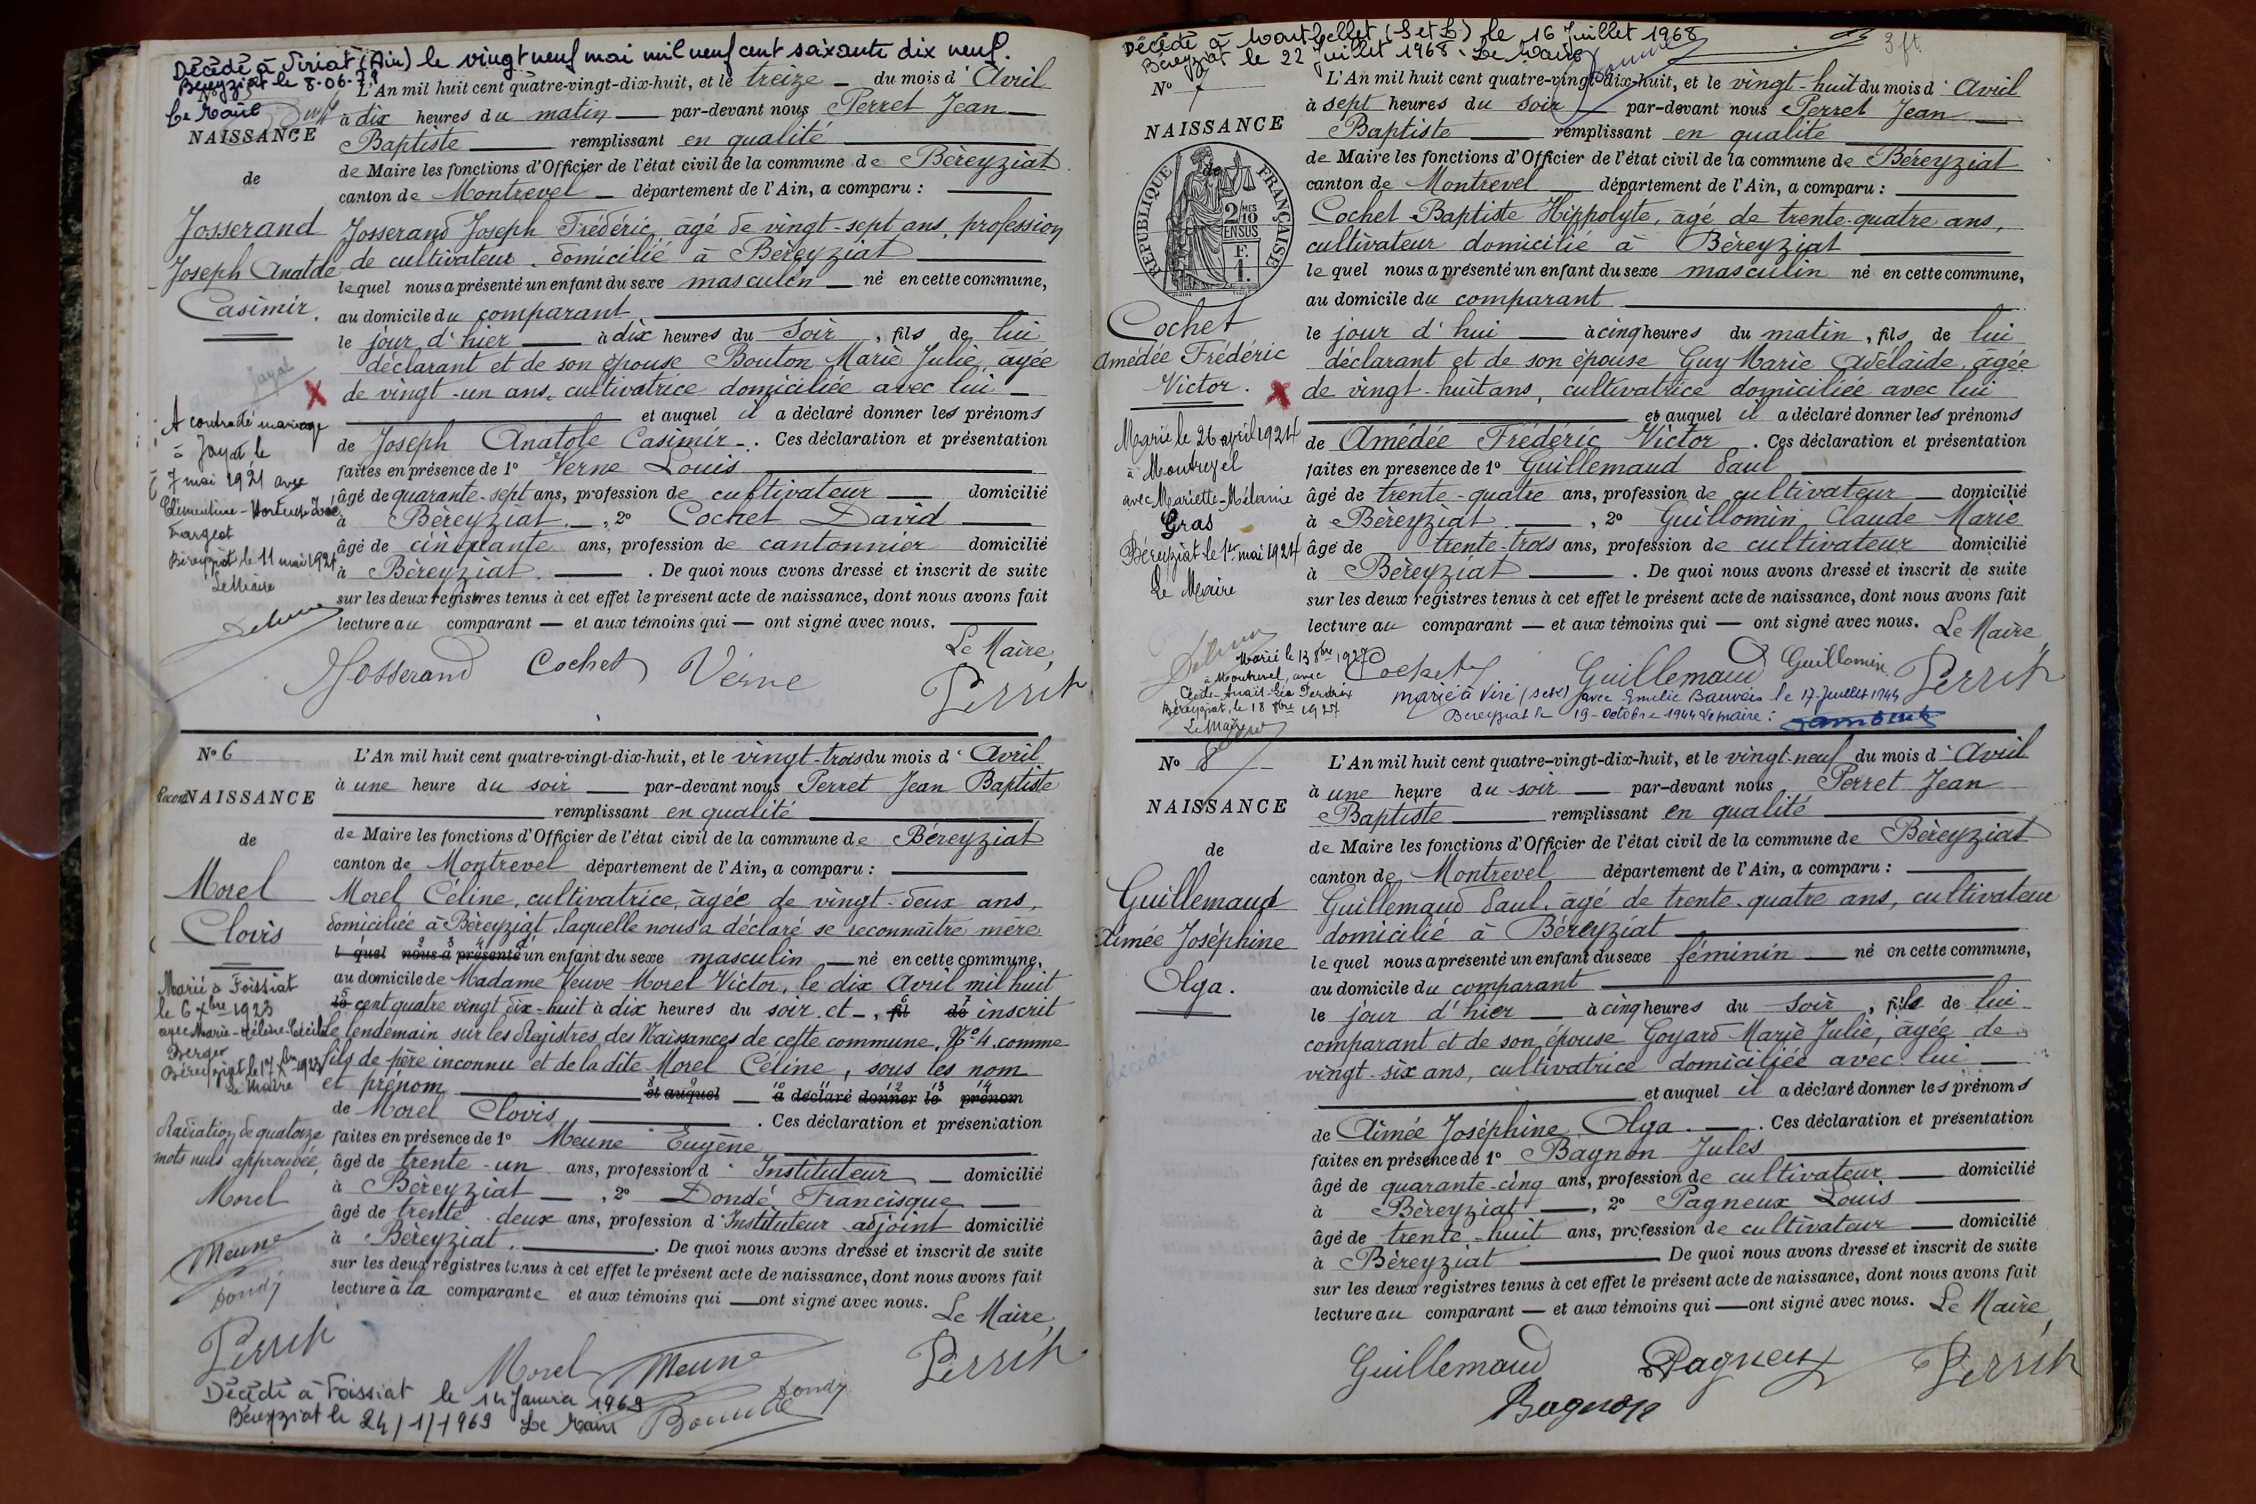 Décédé à Viriat (Ain) le vingt neuf mai mil neuf cent soixante dix neuf.
Béreyziat le 8.06.79
Le Maire
NAISSANCE
de
Josserand
Joseph Anatole
Casimir.
Jayat
A contracté mariage
à Jayat le
7 mai 1921 avec
Farget
Béreyziat le 11 mai 1921
Le Maire
L'An mil huit cent quatre-vingt-dix-huit, et le treize du mois d'Avril
à dix heures du matin par-devant nous Perret Jean
Baptiste remplissant en qualité
de Maire les fonctions d'Officier de l'état civil de la commune de Béreyziat
canton de Montrevel département de l'Ain, a comparu :
Josserand Joseph Frédéric, âgé de vingt-sept ans, profession
de cultivateur, domicilié à Béreyziat
lequel nous a présenté un enfant du sexe masculin né en cette commune,
au domicile du comparant
le jour d'hier à dix heures du soir, fils de lui
déclarant et de son épouse Bouton Marie Julie, agée
de vingt-un ans, cultivatrice domiciliée avec lui
et auquel il a déclaré donner les prénoms
de Joseph Anatole Casimir. Ces déclaration et présentation
faites en présence de 1º Verne Louis
âgé de quarante-sept ans, profession de cultivateur domicilié
à Béreyziat, 2º Cochet David
âgé de cinquante ans, profession de cantonnier domicilié
à Béreyziat. De quoi nous avons dressé et inscrit de suite
sur les deux registres tenus à cet effet le présent acte de naissance, dont nous avons fait
lecture au comparant et aux témoins qui ont signé avec nous.
Le Maire,
Josserand Cochet Verne Perret
Nº 6
NAISSANCE
de
Morel
Clovis
Marié à Foissiat
le 6 Xbre 1923
avec Marie-Hélène-Cécile
Berger
Béreyziat le 17 Xbre 1923
Le Maire
Radiation de quatorze
mots nuls approuvée,
Morel
Meune
Dondé
Perret
L'An mil huit cent quatre-vingt-dix-huit, et le vingt-trois du mois d'Avril
à une heure du soir par-devant nous Perret Jean Baptiste
remplissant en qualité
de Maire les fonctions d'Officier de l'état civil de la commune de Béreyziat
canton de Montrevel département de l'Ain, a comparu :
Morel Céline, cultivatrice, âgée de vingt-deux ans,
domiciliée à Béreyziat, laquelle nous a déclaré se reconnaître mère
l quel nous a présenté d'un enfant du sexe masculin né en cette commune,
au domicile de Madame Veuve Morel Victor, le dix Avril mil huit
le cent quatre vingt dix-huit à dix heures du soir et, fil de inscrit
le lendemain sur les Registres des Naissances de cette commune, Nº 4, comme
fils de père inconnu et de la dite Morel Céline, sous les nom
et prénom et auquel a déclaré donner le prénom
de Morel Clovis. Ces déclaration et présentation
faites en présence de 1º Meune Eugène
âgé de trente-un ans, profession d'Instituteur domicilié
à Béreyziat, 2º Dondé Francisque
âgé de trente-deux ans, profession d'Instituteur adjoint domicilié
à Béreyziat. De quoi nous avons dressé et inscrit de suite
sur les deux registres tenus à cet effet le présent acte de naissance, dont nous avons fait
lecture à la comparante et aux témoins qui ont signé avec nous.
Le Maire,
Morel Meune Dondé Perret
Décédé à Foissiat le 14 Janvier 1969
Béreyziat le 24/1/1969 Le Maire
Décédé à Montbellet (S et L) le 16 Juillet 1968
Béreyziat le 22 Juillet 1968. Le Maire
3 ft
Nº 7
NAISSANCE
de
RÉPUBLIQUE FRANÇAISE
2/10 MES
EN SUS
1 F.
Cochet
Amédée Frédéric
Victor.
Marié le 26 avril 1924
à Montrevel
avec Mariette-Mélanie
Gras
Béreyziat le 1er mai 1924
Le Maire
L'An mil huit cent quatre-vingt-dix-huit, et le vingt-huit du mois d'Avril
à sept heures du soir par-devant nous Perret Jean
Baptiste remplissant en qualité
de Maire les fonctions d'Officier de l'état civil de la commune de Béreyziat
canton de Montrevel département de l'Ain, a comparu :
Cochet Baptiste Hippolyte, âgé de trente-quatre ans,
cultivateur domicilié à Béreyziat
lequel nous a présenté un enfant du sexe masculin né en cette commune,
au domicile du comparant
le jour d'hui à cinq heures du matin, fils de lui
déclarant et de son épouse Guy Marie Adélaïde, âgée
de vingt-huit ans, cultivatrice domiciliée avec lui
et auquel il a déclaré donner les prénoms
de Amédée Frédéric Victor. Ces déclaration et présentation
faites en présence de 1º Guillemaud Saul
âgé de trente-quatre ans, profession de cultivateur domicilié
à Béreyziat, 2º Guillomin Claude Marie
âgé de trente-trois ans, profession de cultivateur domicilié
à Béreyziat. De quoi nous avons dressé et inscrit de suite
sur les deux registres tenus à cet effet le présent acte de naissance, dont nous avons fait
lecture au comparant et aux témoins qui ont signé avec nous.
Le Maire,
Cochet Guillemaud Guillomin Perret
Marié le 13 8bre 1927
à Montrevel, avec
Béreyziat, le 18 8bre 1927
Le Maire
marié à Viré (S et L) avec Emilie Bauvois le 17 Juillet 1944
Béreyziat le 19 Octobre 1944 Le maire :
Nº 8
NAISSANCE
de
Guillemaud
Aimée Joséphine
Olga.
L'An mil huit cent quatre-vingt-dix-huit, et le vingt-neuf du mois d'Avril
à une heure du soir par-devant nous Perret Jean
Baptiste remplissant en qualité
de Maire les fonctions d'Officier de l'état civil de la commune de Béreyziat
canton de Montrevel département de l'Ain, a comparu :
Guillemaud Saul, âgé de trente-quatre ans, cultivateur
domicilié à Béreyziat
lequel nous a présenté un enfant du sexe féminin né en cette commune,
au domicile du comparant
le jour d'hier à cinq heures du soir, fille de lui
comparant et de son épouse Goyard Marie Julie, âgée de
vingt-six ans, cultivatrice domiciliée avec lui
et auquel il a déclaré donner les prénoms
de Aimée Joséphine Olga. Ces déclaration et présentation
faites en présence de 1º Bagnon Jules
âgé de quarante-cinq ans, profession de cultivateur domicilié
à Béreyziat, 2º Pagneux Louis
âgé de trente-huit ans, profession de cultivateur domicilié
à Béreyziat De quoi nous avons dressé et inscrit de suite
sur les deux registres tenus à cet effet le présent acte de naissance, dont nous avons fait
lecture au comparant et aux témoins qui ont signé avec nous. Le Maire,
Guillemaud Pagneux Perret
Bagnon